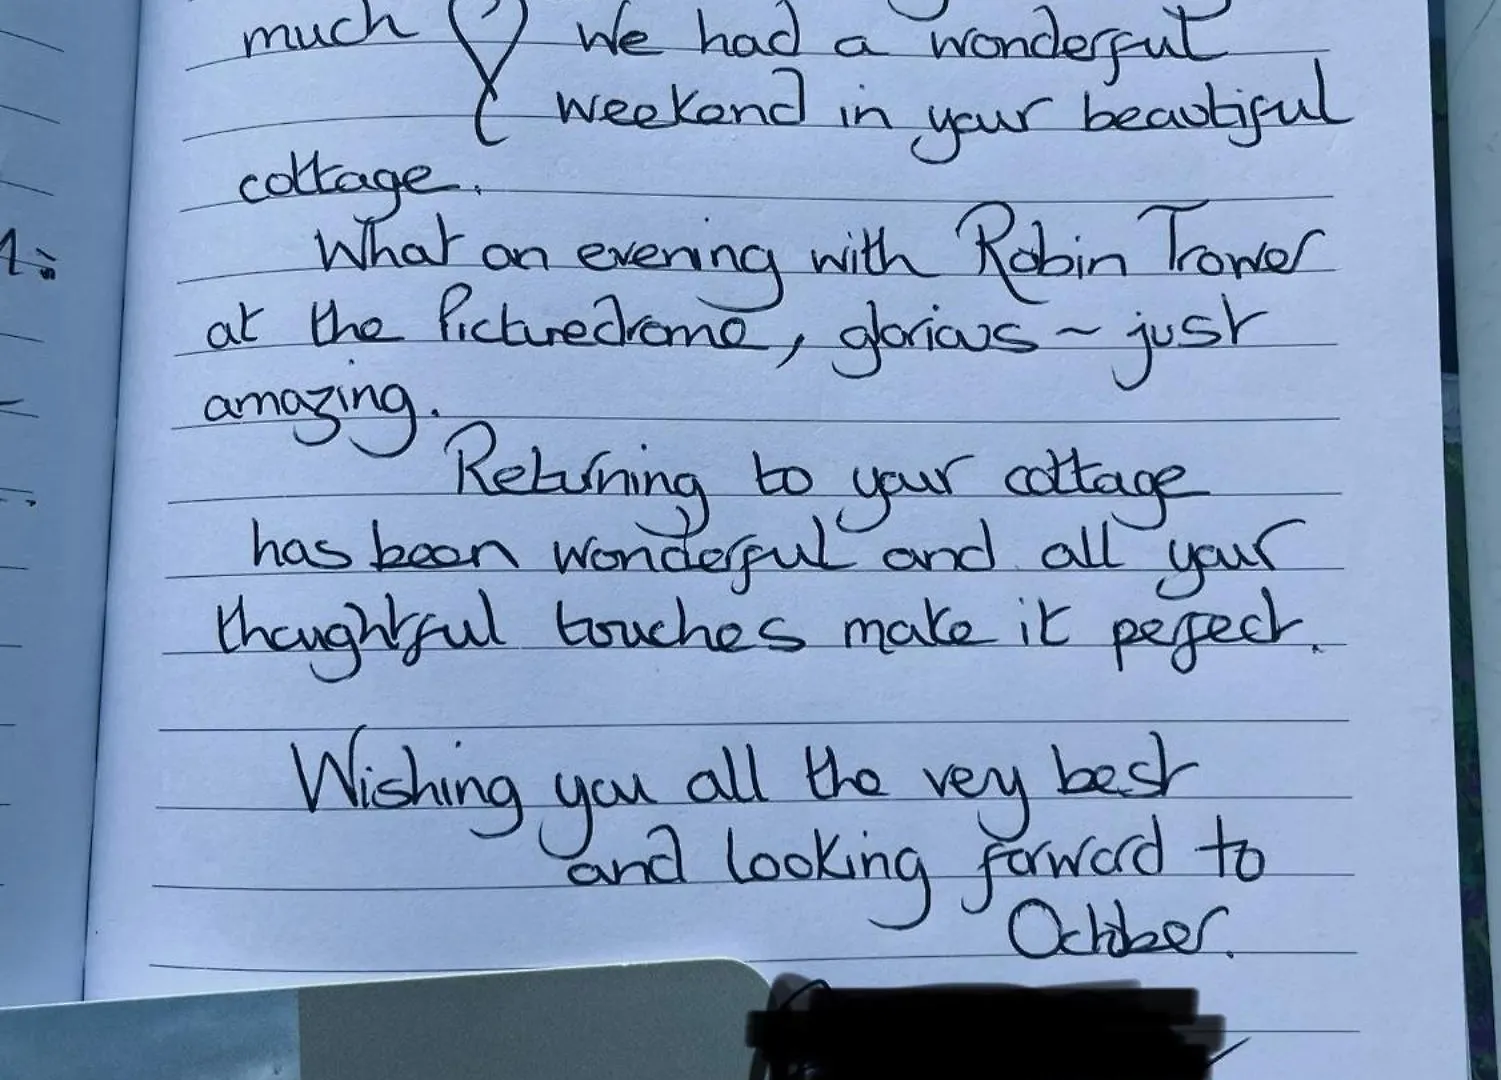 much We had a wonderful
weekend in your beautiful
cottage.
What an evening with Robin Trower
at the Picturedrome, glorious ~ just
amazing.
Returning to your cottage
has been wonderful and all your
thoughtful touches make it pefect.
Wishing you all the very best
and looking forward to
October.